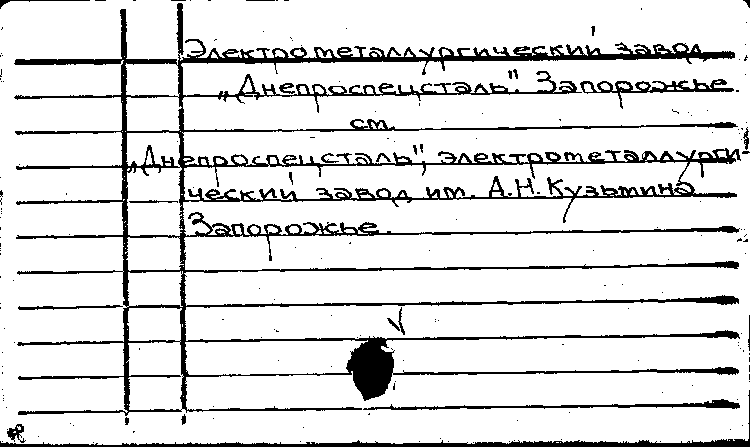 Электрометаллургический завод
„Днепроспецсталь". Запорожье
см.
„Днепроспецсталь", электрометаллурги-
ческий завод им. А.Н. Кузьмина
Запорожье.